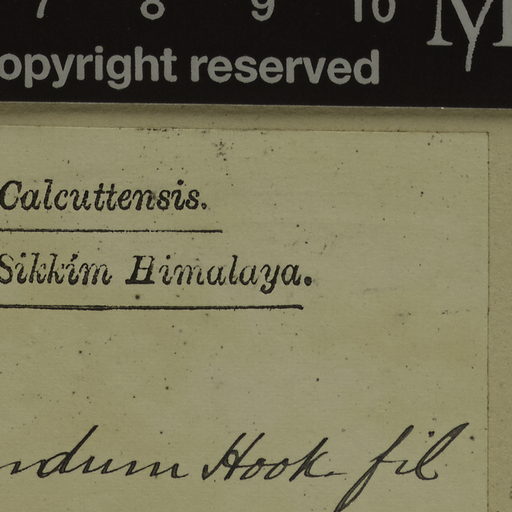 7 8 9 10 M
opyright reserved
Calcuttensis.
Sikkim Himalaya.
ndum Hook. fil